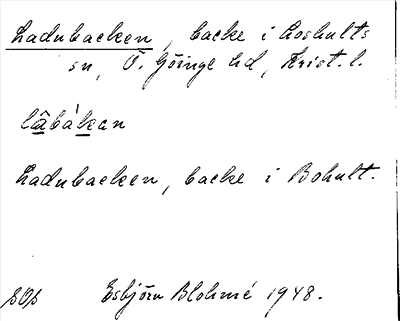 Ladubacken, backe i Loshults
sn, Ö. Göinge hd, Krist. l.
lâbàkan
Ladubacken, backe i Bohult.
Esbjörn Blohmé 1948.